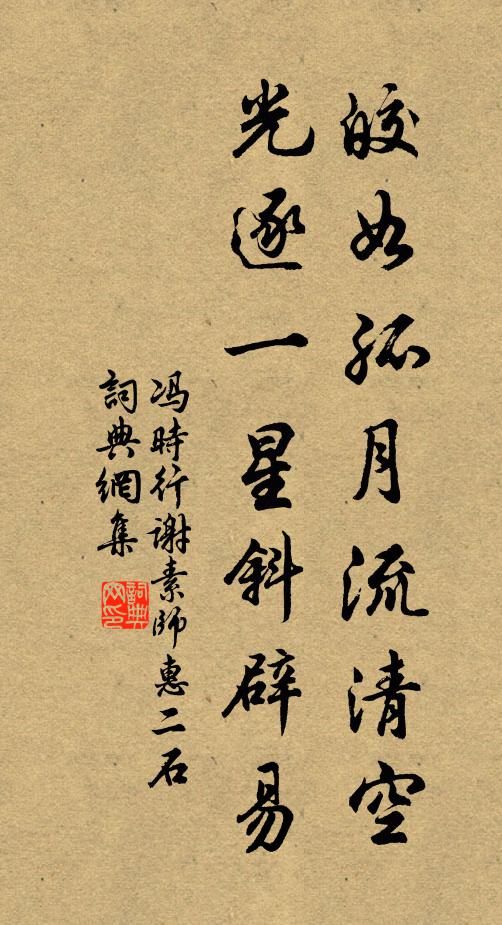 皎如孤月流清空
光逐一星斜辟易
冯時行谢素師惠二石
詞典網集
詞典網印